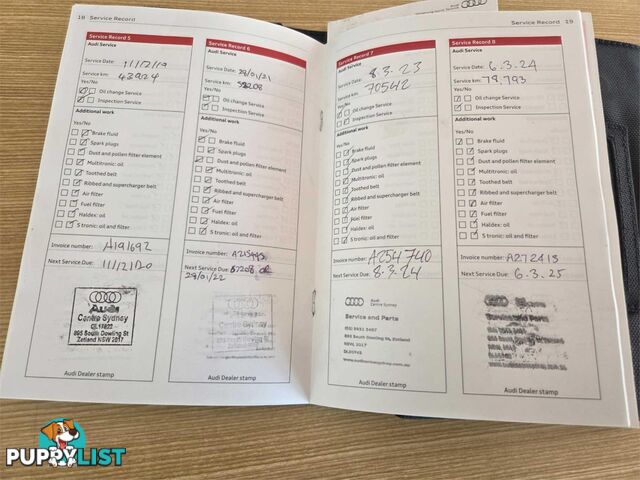 18 Service Record
Service Record 5
Audi Service
Service Date: 11/12/19
Service km: 42924
Yes/No
Oil change Service
Inspection Service
Additional work
Yes/No
Brake fluid
Spark plugs
Dust and pollen filter element
Multitronic: oil
Toothed belt
Ribbed and supercharger belt
Air filter
Fuel filter
Haldex: oil
S tronic: oil and filter
Invoice number: A191692
Next Service Due: 11/12/20
Audi
Centre Sydney
895 South Dowling St
Zetland NSW 2017
Audi Dealer stamp
Service Record 6
Audi Service
Service Date: 29/01/21
Service km: 58208
Yes/No
Oil change Service
Inspection Service
Additional work
Yes/No
Brake fluid
Spark plugs
Dust and pollen filter element
Multitronic: oil
Toothed belt
Ribbed and supercharger belt
Air filter
Fuel filter
Haldex: oil
S tronic: oil and filter
Invoice number:
Next Service Due: OR
29/01/22
Audi Dealer stamp
Service Record 19
Service Record 7
Audi Service
Service Date: 8.3.23
Service km: 70542
Yes/No
Oil change Service
Inspection Service
Additional work
Yes/No
Brake fluid
Spark plugs
Dust and pollen filter element
Multitronic: oil
Toothed belt
Ribbed and supercharger belt
Air filter
Fuel filter
Haldex: oil
S tronic: oil and filter
Invoice number: A254740
Next Service Due: 8.3.24
Audi
Centre Sydney
Service and Parts
895 South Dowling St, Zetland
NSW, 2017
Audi Dealer stamp
Service Record 8
Audi Service
Service Date: 6.3.24
Service km: 79,793
Yes/No
Oil change Service
Inspection Service
Additional work
Yes/No
Brake fluid
Spark plugs
Dust and pollen filter element
Multitronic: oil
Toothed belt
Ribbed and supercharger belt
Air filter
Fuel filter
Haldex: oil
S tronic: oil and filter
Invoice number: A272413
Next Service Due: 6.3.25
Audi Dealer stamp
PUPPYLIST